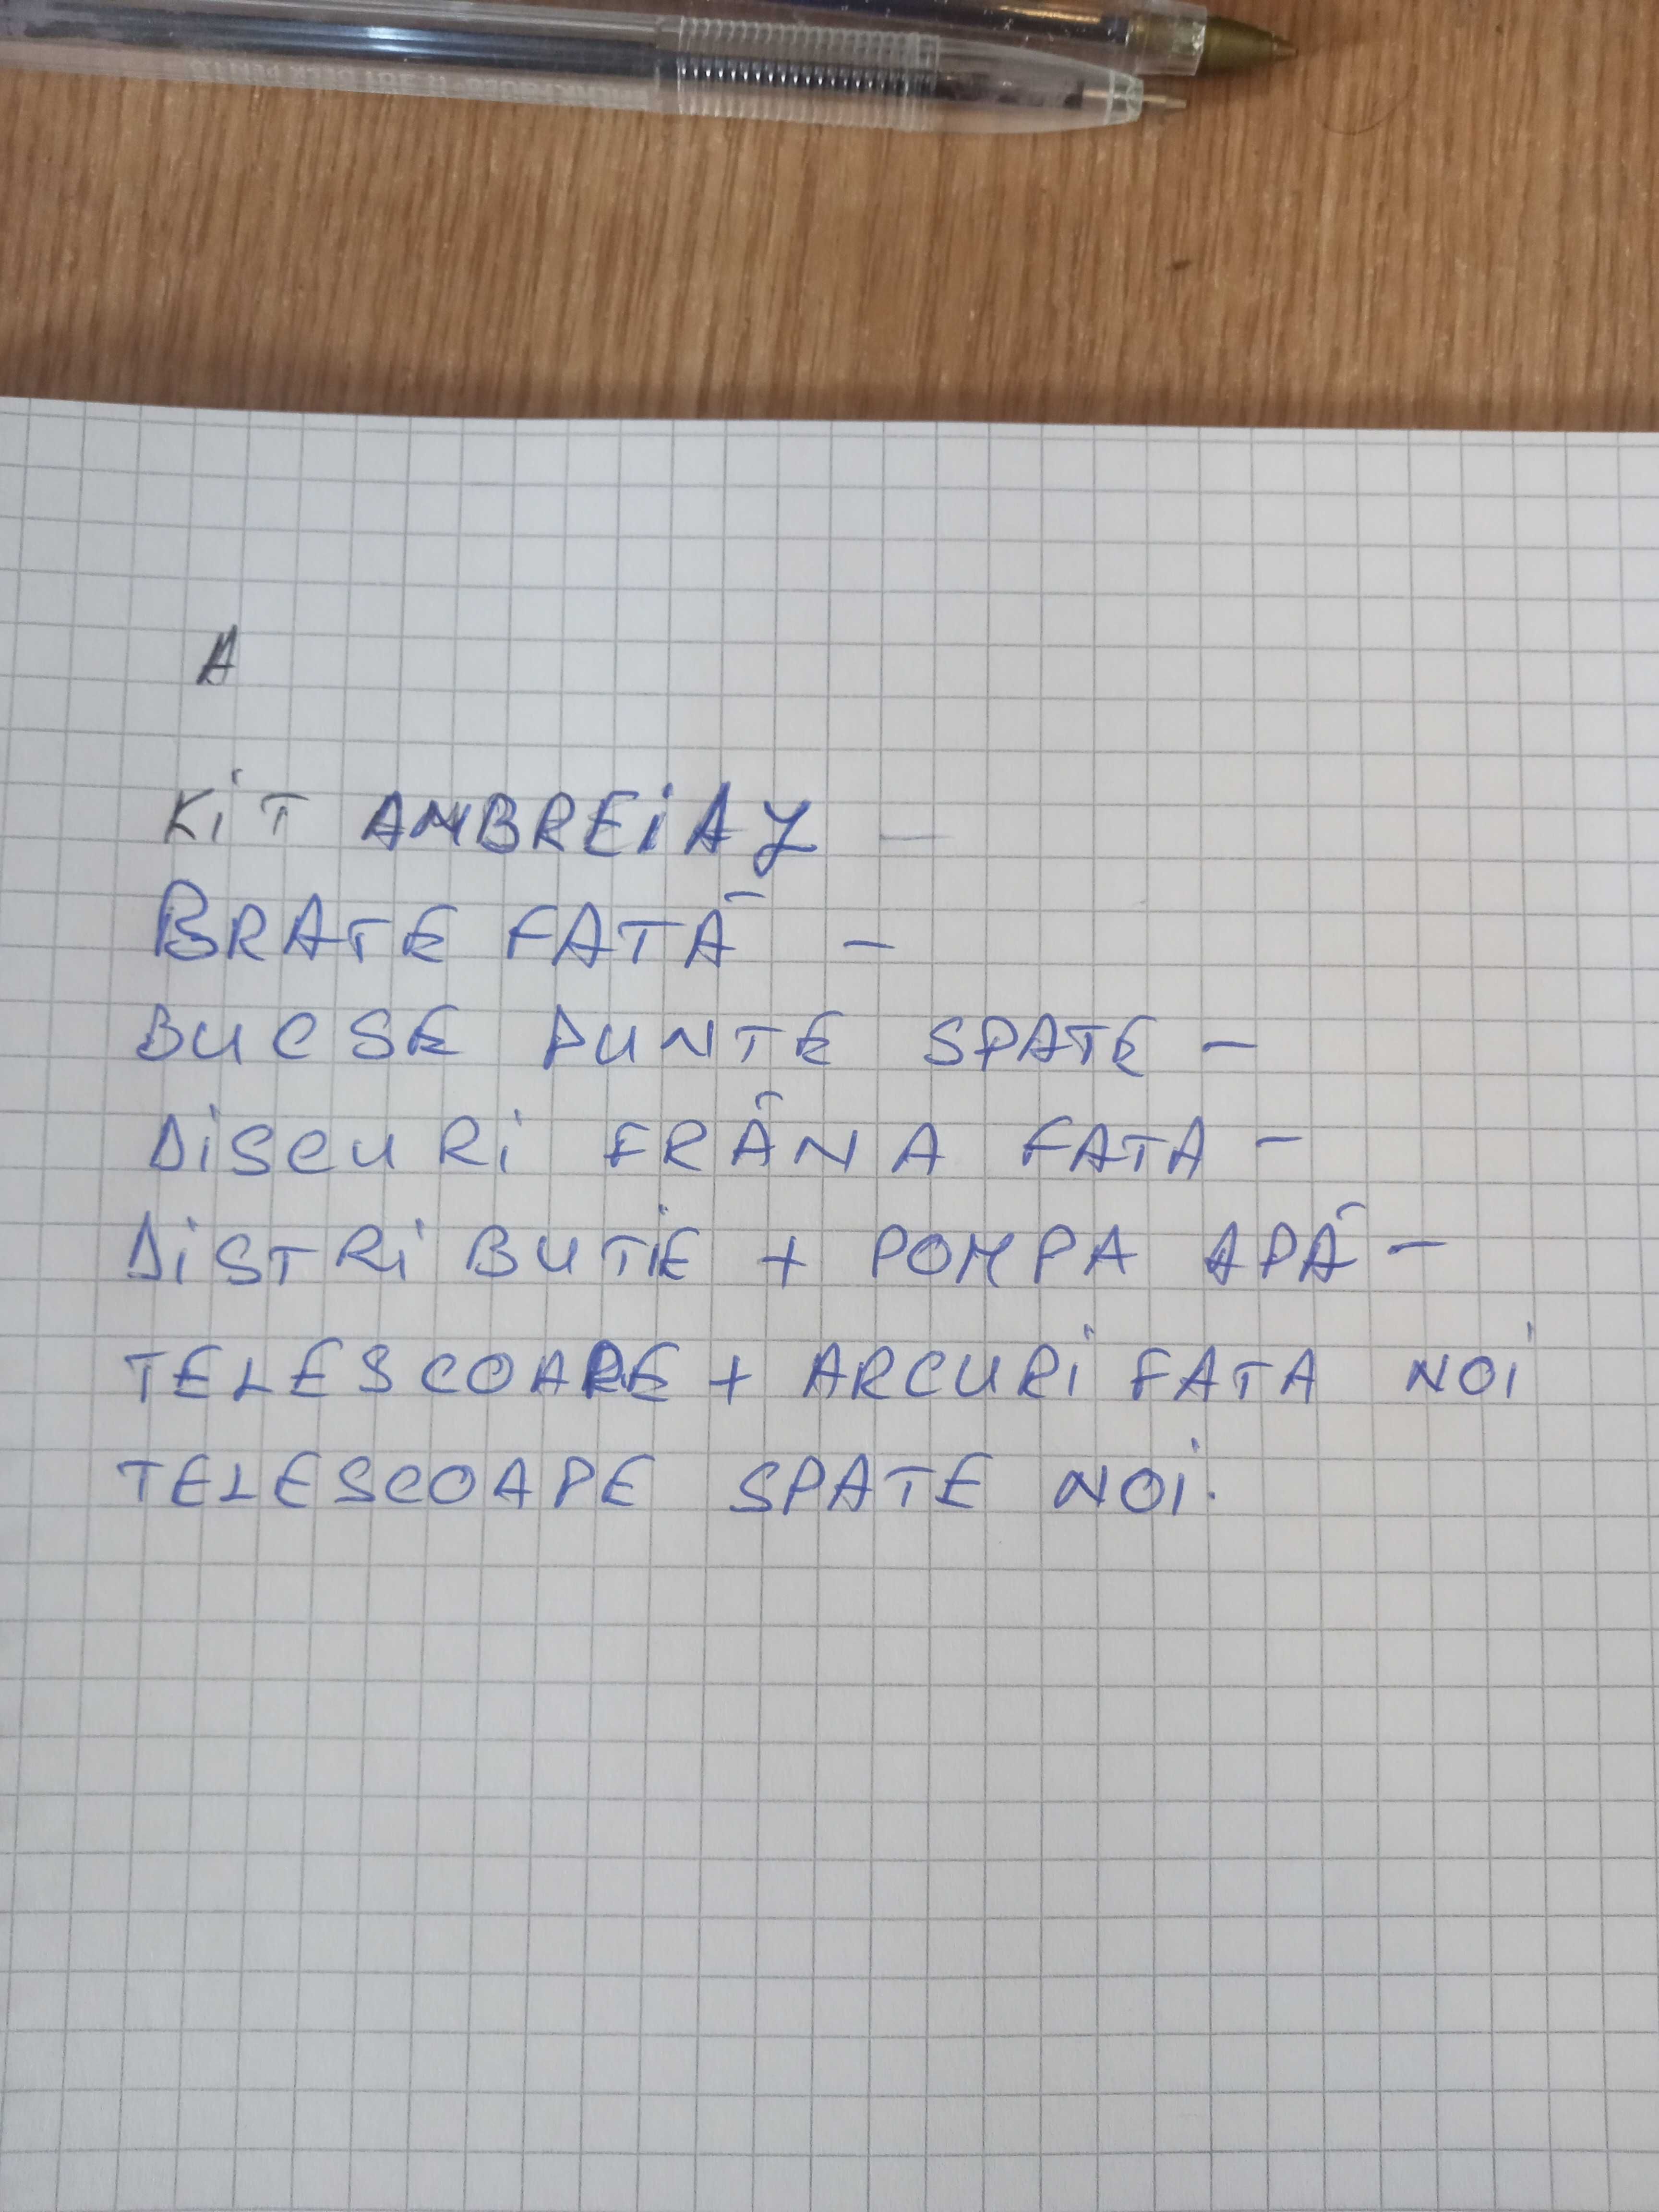 A
KIT AMBREIAJ -
BRATE FATĂ -
BUCSE PUNTE SPATE -
DISCURI FRÂNA FATA -
DISTRIBUTIE + POMPA APĂ -
TELESCOAPE + ARCURI FATA NOI
TELESCOAPE SPATE NOI.